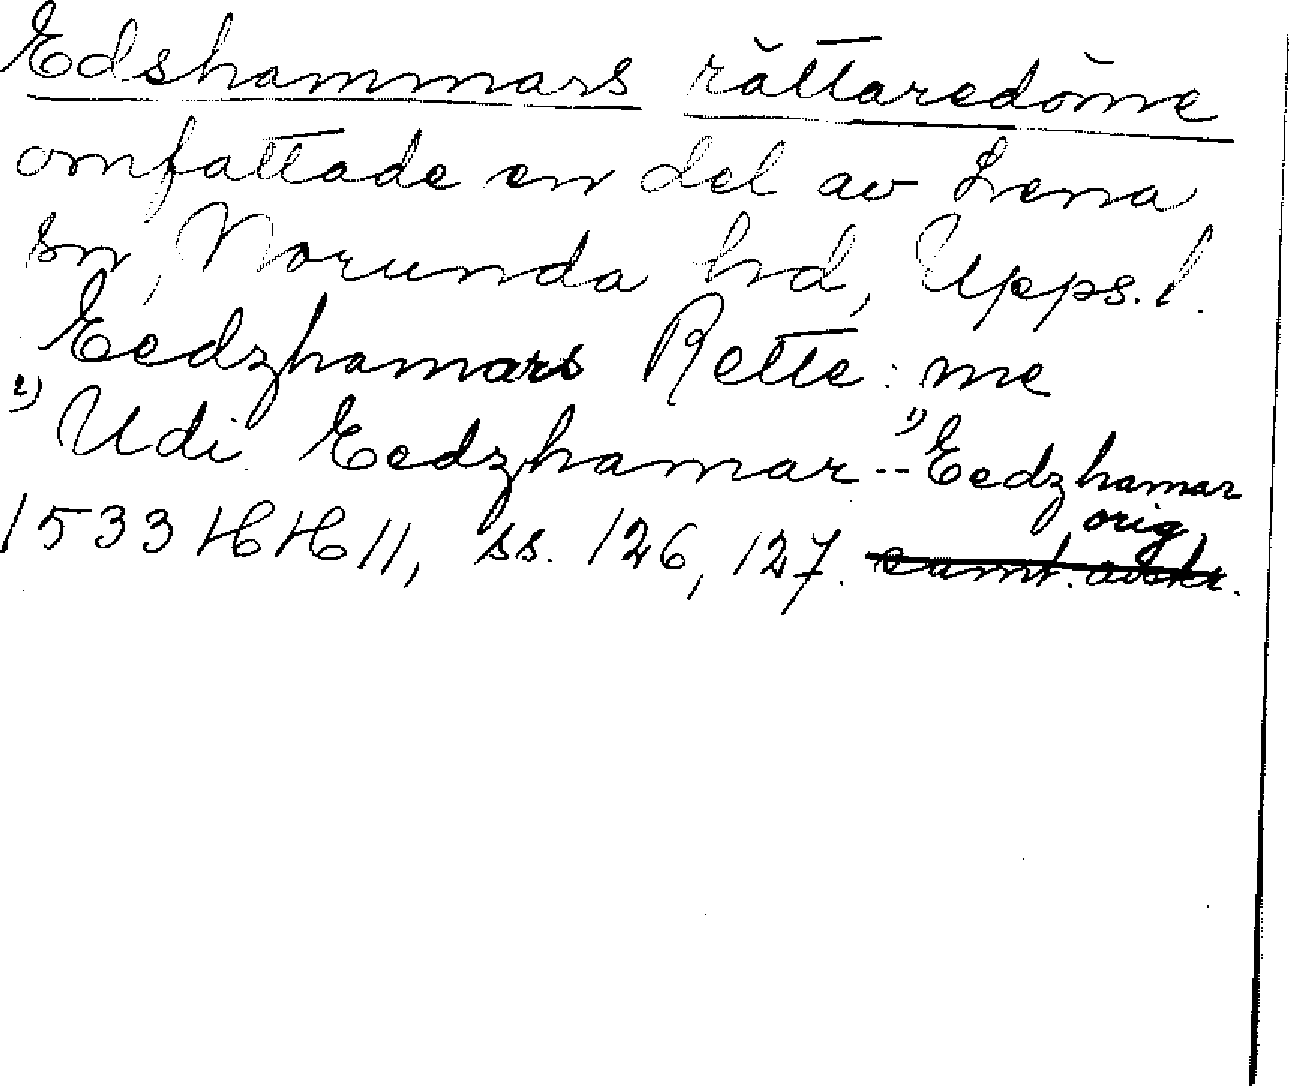 Edshammars rättaredöme
omfattade en del av Lena
sn, Norunda hd, Upps. l.
Eedzhamars Rette: me
1) Udi Eedzhamar -- 1) Eedzhamar
orig,
1533 HH 11, ss. 126, 127. samt. avskr.